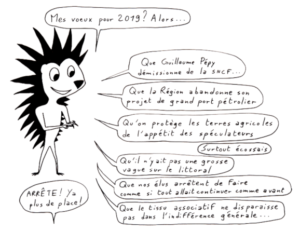 Mes voeux pour 2019? Alors...
Que Guillaume Pépy
démissionne de la SNCF...
Que la Région abandonne son
projet de grand port pétrolier
Qu'on protège les terres agricoles
de l'appétit des spéculateurs
Surtout écossais
Qu'il n'y ait pas une grosse
vague sur le littoral
Que nos élus arrêtent de faire
comme si tout allait continuer comme avant
Que le tissu associatif ne disparaisse
pas dans l'indifférence générale...
ARRÊTE! Y'a
plus de place!